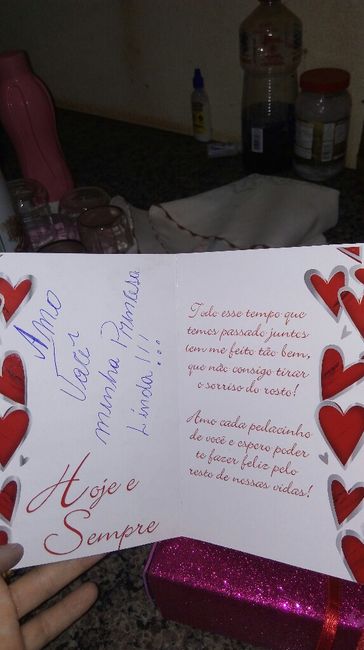 Amo
Você!
minha Princesa
Linda!!!...
Hoje e
Sempre
Todo esse tempo que
temos passado juntos
tem me feito tão bem,
que não consigo tirar
o sorriso do rosto!
Amo cada pedacinho
de você e espero poder
te fazer feliz pelo
resto de nossas vidas!